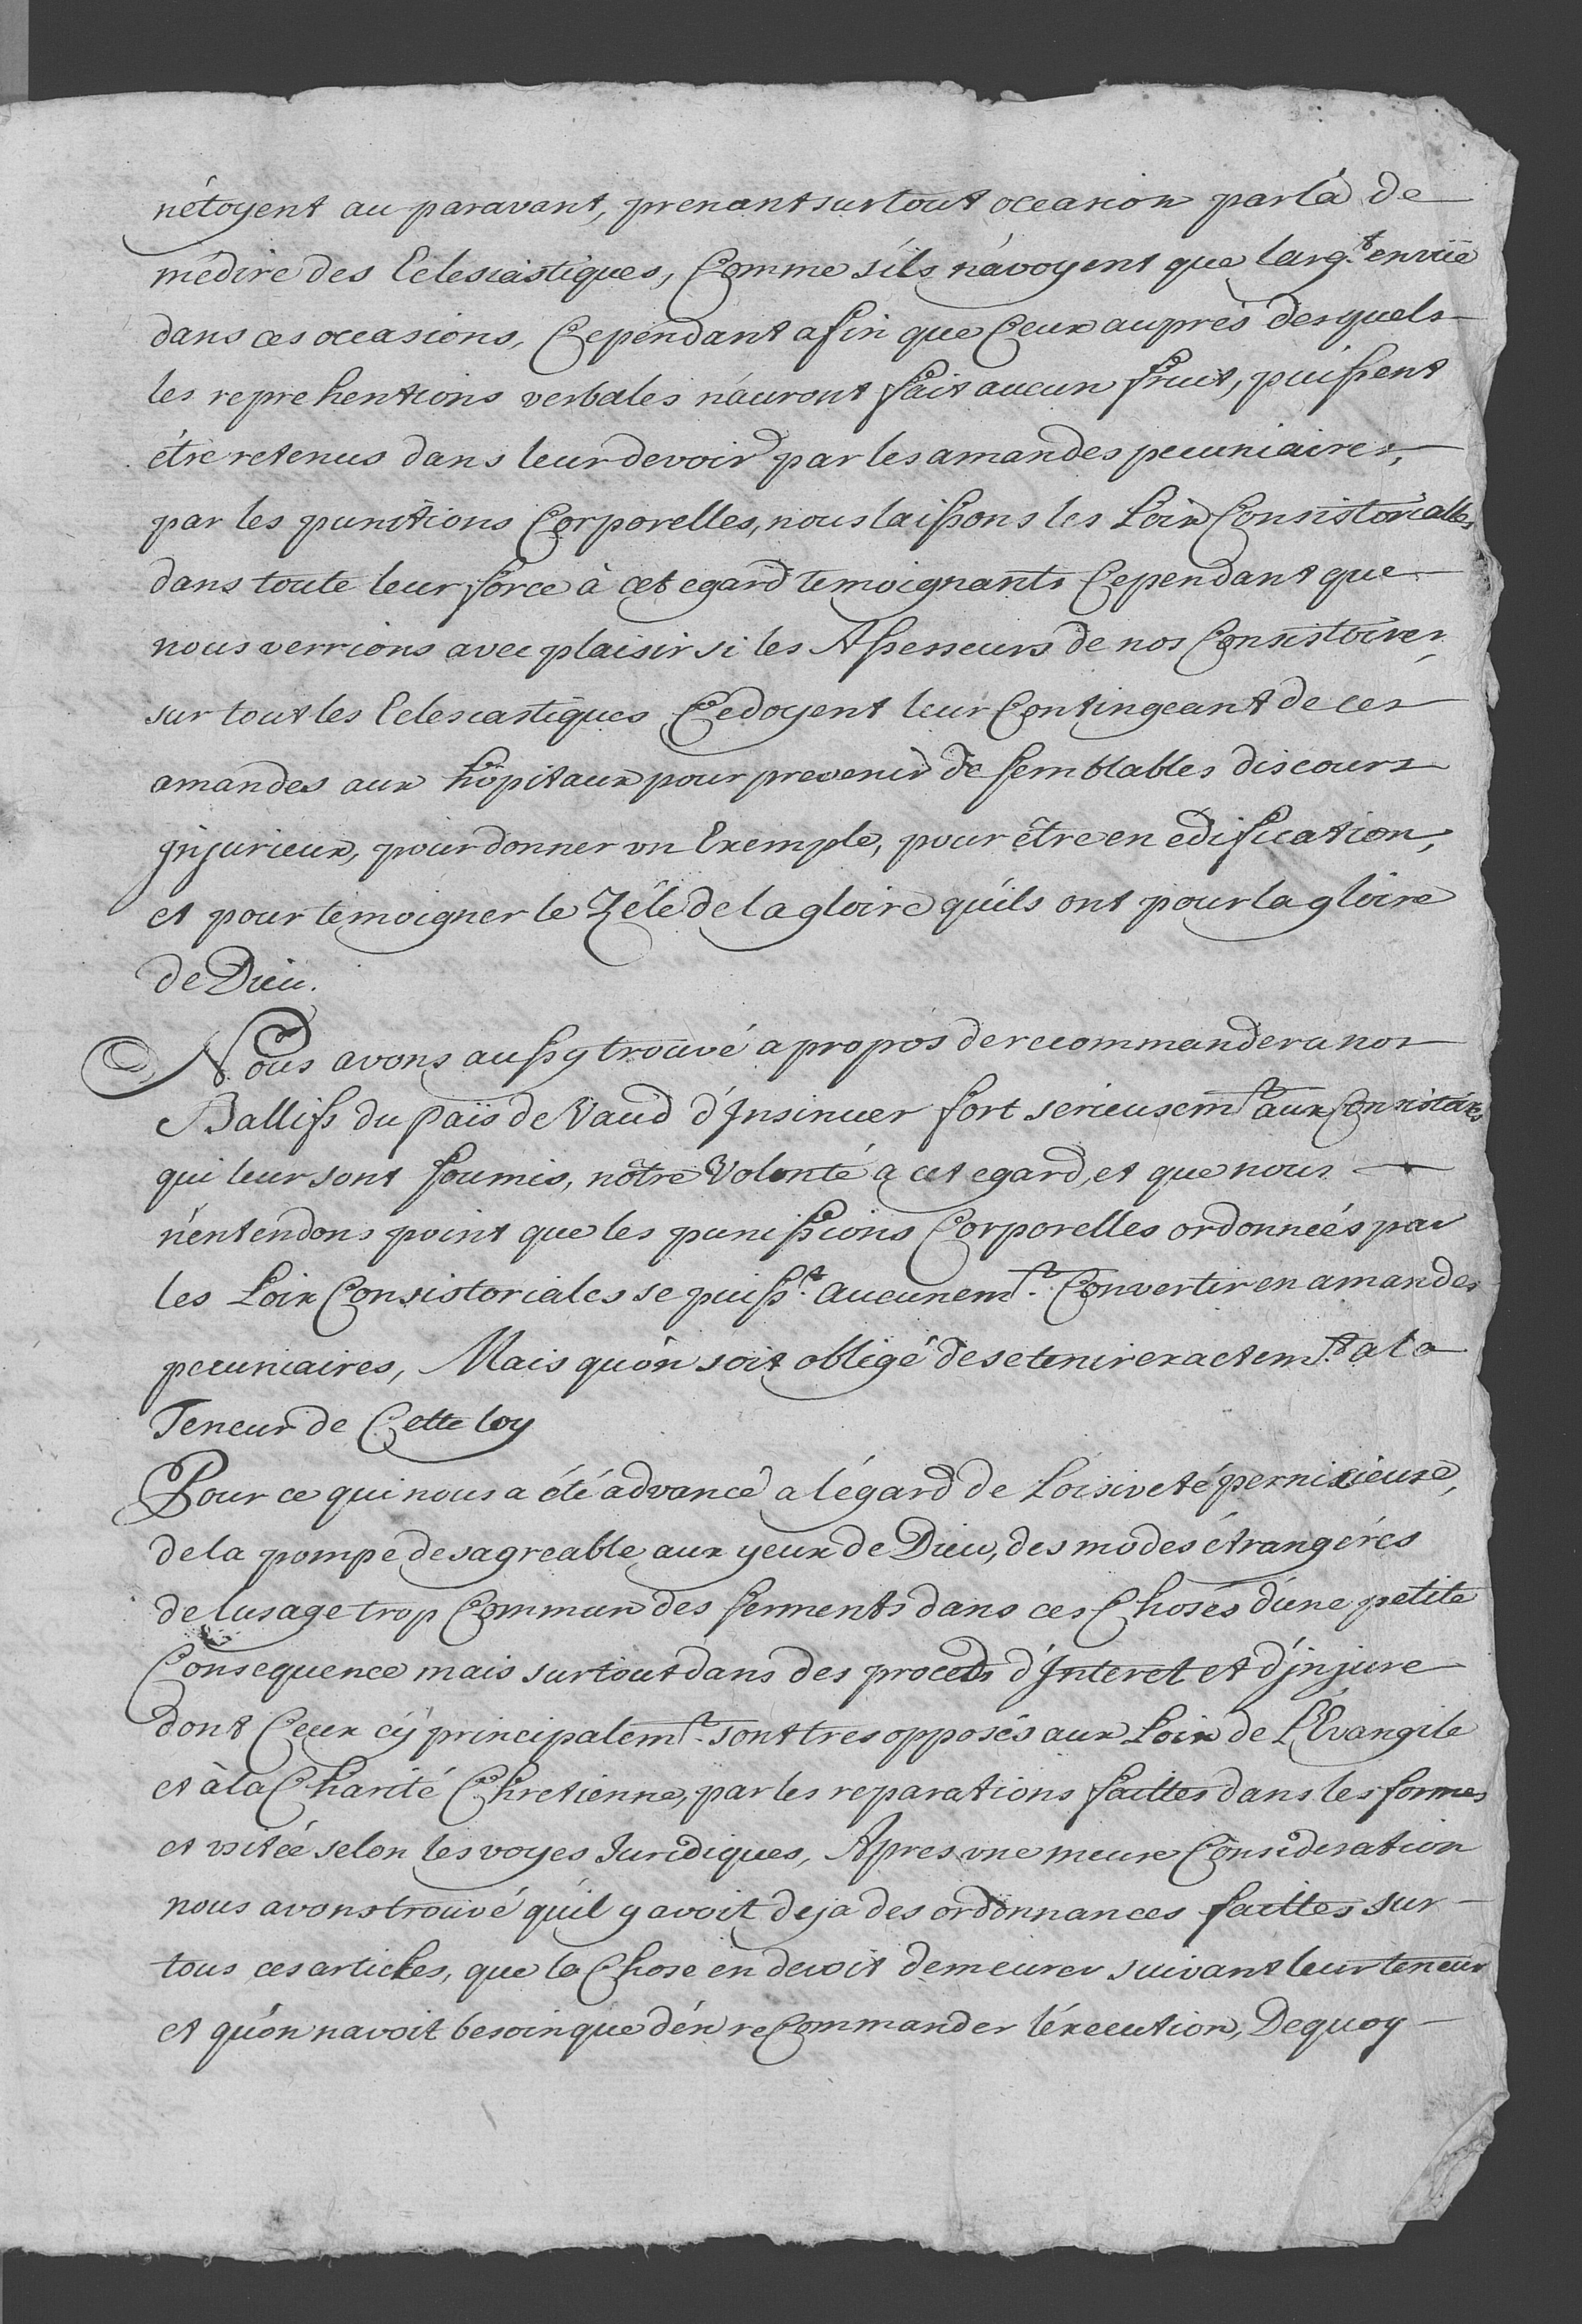 n'étoyent au paravant, prenant surtout occasion par la de
médire des Eclesiastiques, Comme s'ils n'avoyent que l'arg.t en vüe
dans ces occasions, Cependant afin que Ceux auprès desquels
les reprehentions verbales n'auront fait aucun fruit, puissent
être retenus dans leur devoir par les amandes pecuniaires,
par les punitions Corporelles, nous laissons les Loix Consistoriales
dans toute leur force à cet egard temoignants Cependant que
nous verrions avec plaisir si les Assesseurs de nos Consistoires,
sur tout les Eclesiastiques Cedoyent leur Contingeant de ces
amandes aux hôpitaux pour prevenir de semblables discours
jnjurieux, pour donner un Exemple, pour être en edification,
et pour temoigner le Zéle de la gloire qu'ils ont pour la gloire
de Dieu.
Nous avons aussy trouvé a propos de recommander a nos
Ballifs du païs de Vaud d'Insinuer fort serieusem.t aux Consistoires
qui leur sont soumis, nôtre Volonté a cet egard, et que nous
n'entendons point que les punissions Corporelles ordonneés par
les Loix Consistoriales se puiss.t aucunem.t Convertir en amandes
pecuniaires, Mais qu'on soit obligé de se tenir exactem.t a la
Teneur de Cette loy
Pour ce qui nous a été advancé a l'égard de Loisiveté pernixieuse,
de la pompe desagreable aux yeux de Dieu, des modes étrangéres
de lusage trop Commun des serments dans ces Choses d'une petite
Consequence mais surtout dans des proceds d'Interet et d'jnjure
dont Ceux cÿ principalem.t sont tres opposés aux Loix de L'Evangile
et à la Charité Chretienne, par les reparations faittes dans les formes
et usitée selon les voyes Juridiques, Apres une meure Consideration
nous avons trouvé qu'il y avoit deja des ordonnances faittes sur
tous ces articles, que la Chose en devoit demeurer suivant leur teneur
et qu'on navoit besoin que d'en reCommander l'éxecution, Dequoy